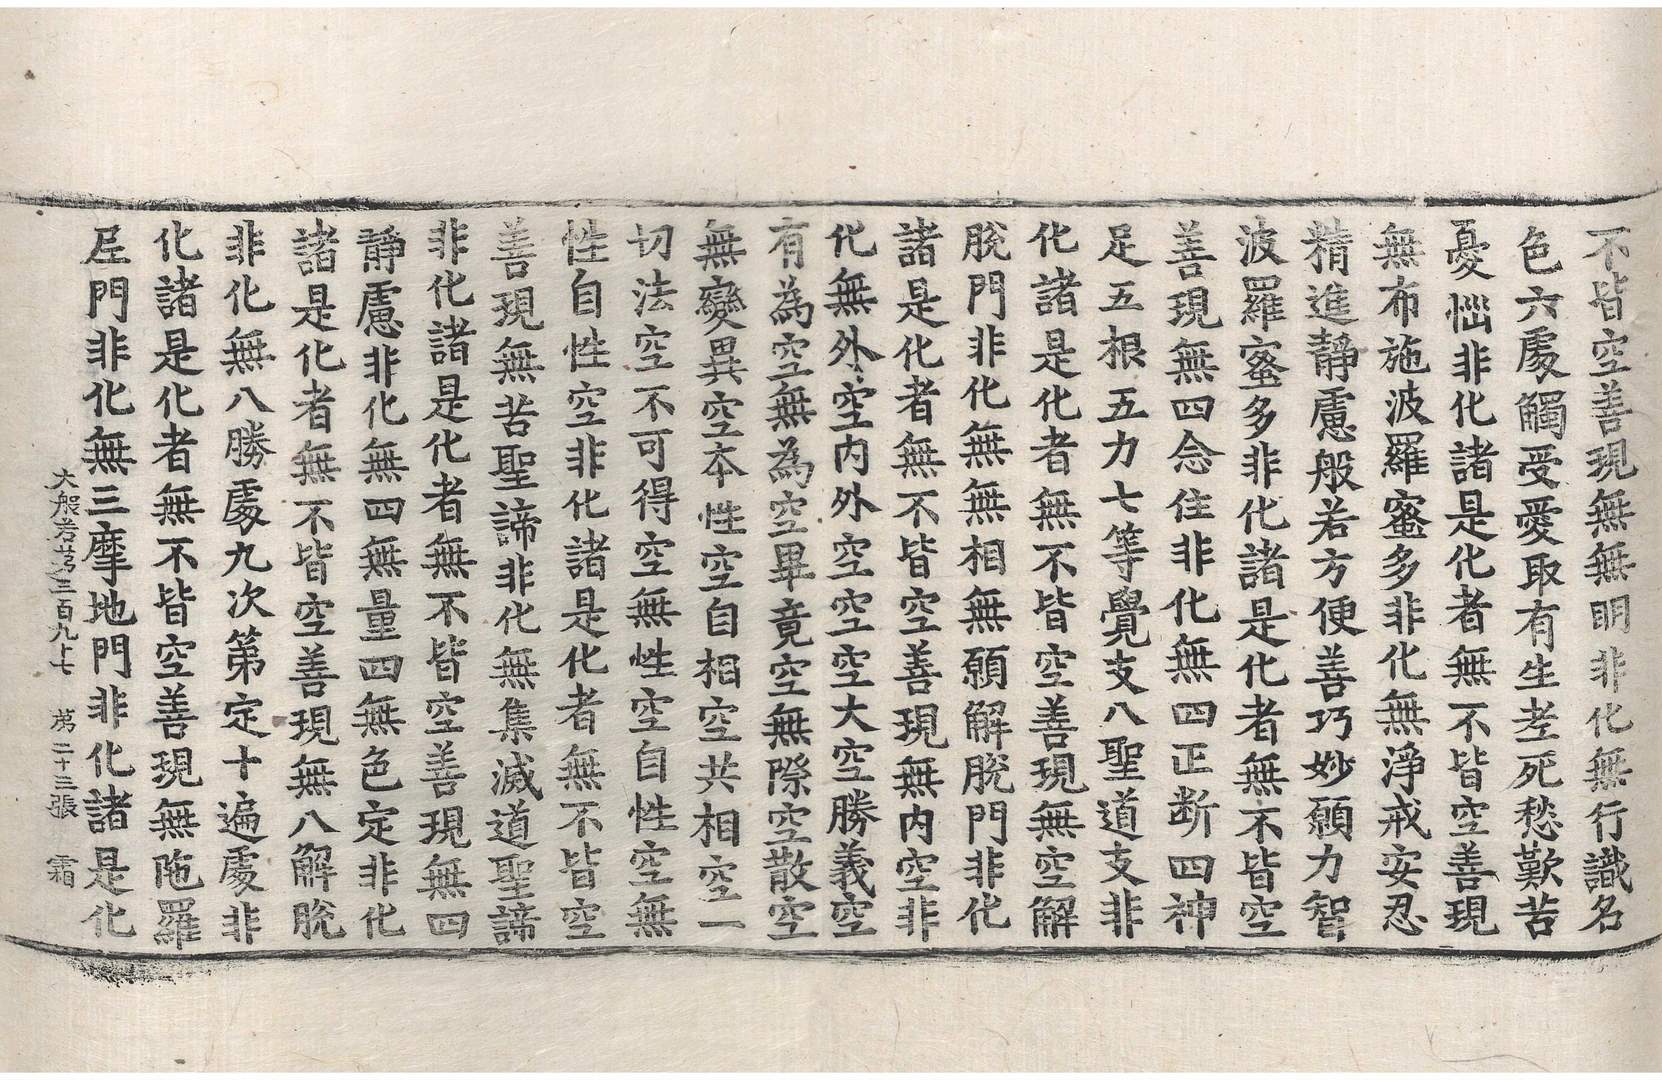 不皆空善現無無明非化無行識名
色六處觸受愛取有生老死愁歎苦
憂惱非化諸是化者無不皆空善現
無布施波羅蜜多非化無淨戒安忍
精進靜慮般若方便善巧妙願力智
波羅蜜多非化諸是化者無不皆空
善現無四念住非化無四正断四神
足五根五力七等覺支八聖道支非
化諸是化者無不皆空善現無空解
脫門非化無無相無願解脫門非化
諸是化者無不皆空善現無內空非
化無外空內外空空空大空勝義空
有為空無為空畢竟空無際空散空
無變異空本性空自相空共相空一
切法空不可得空無性空自性空無
性自性空非化諸是化者無不皆空
善現無苦聖諦非化無集滅道聖諦
非化諸是化者無不皆空善現無四
靜慮非化無四無量四無色定非化
諸是化者無不皆空善現無八解脫
非化無八勝處九次第定十遍處非
化諸是化者無不皆空善現無陁羅
尼門非化無三摩地門非化諸是化
大般若苐三百九十七 苐二十三張 霜